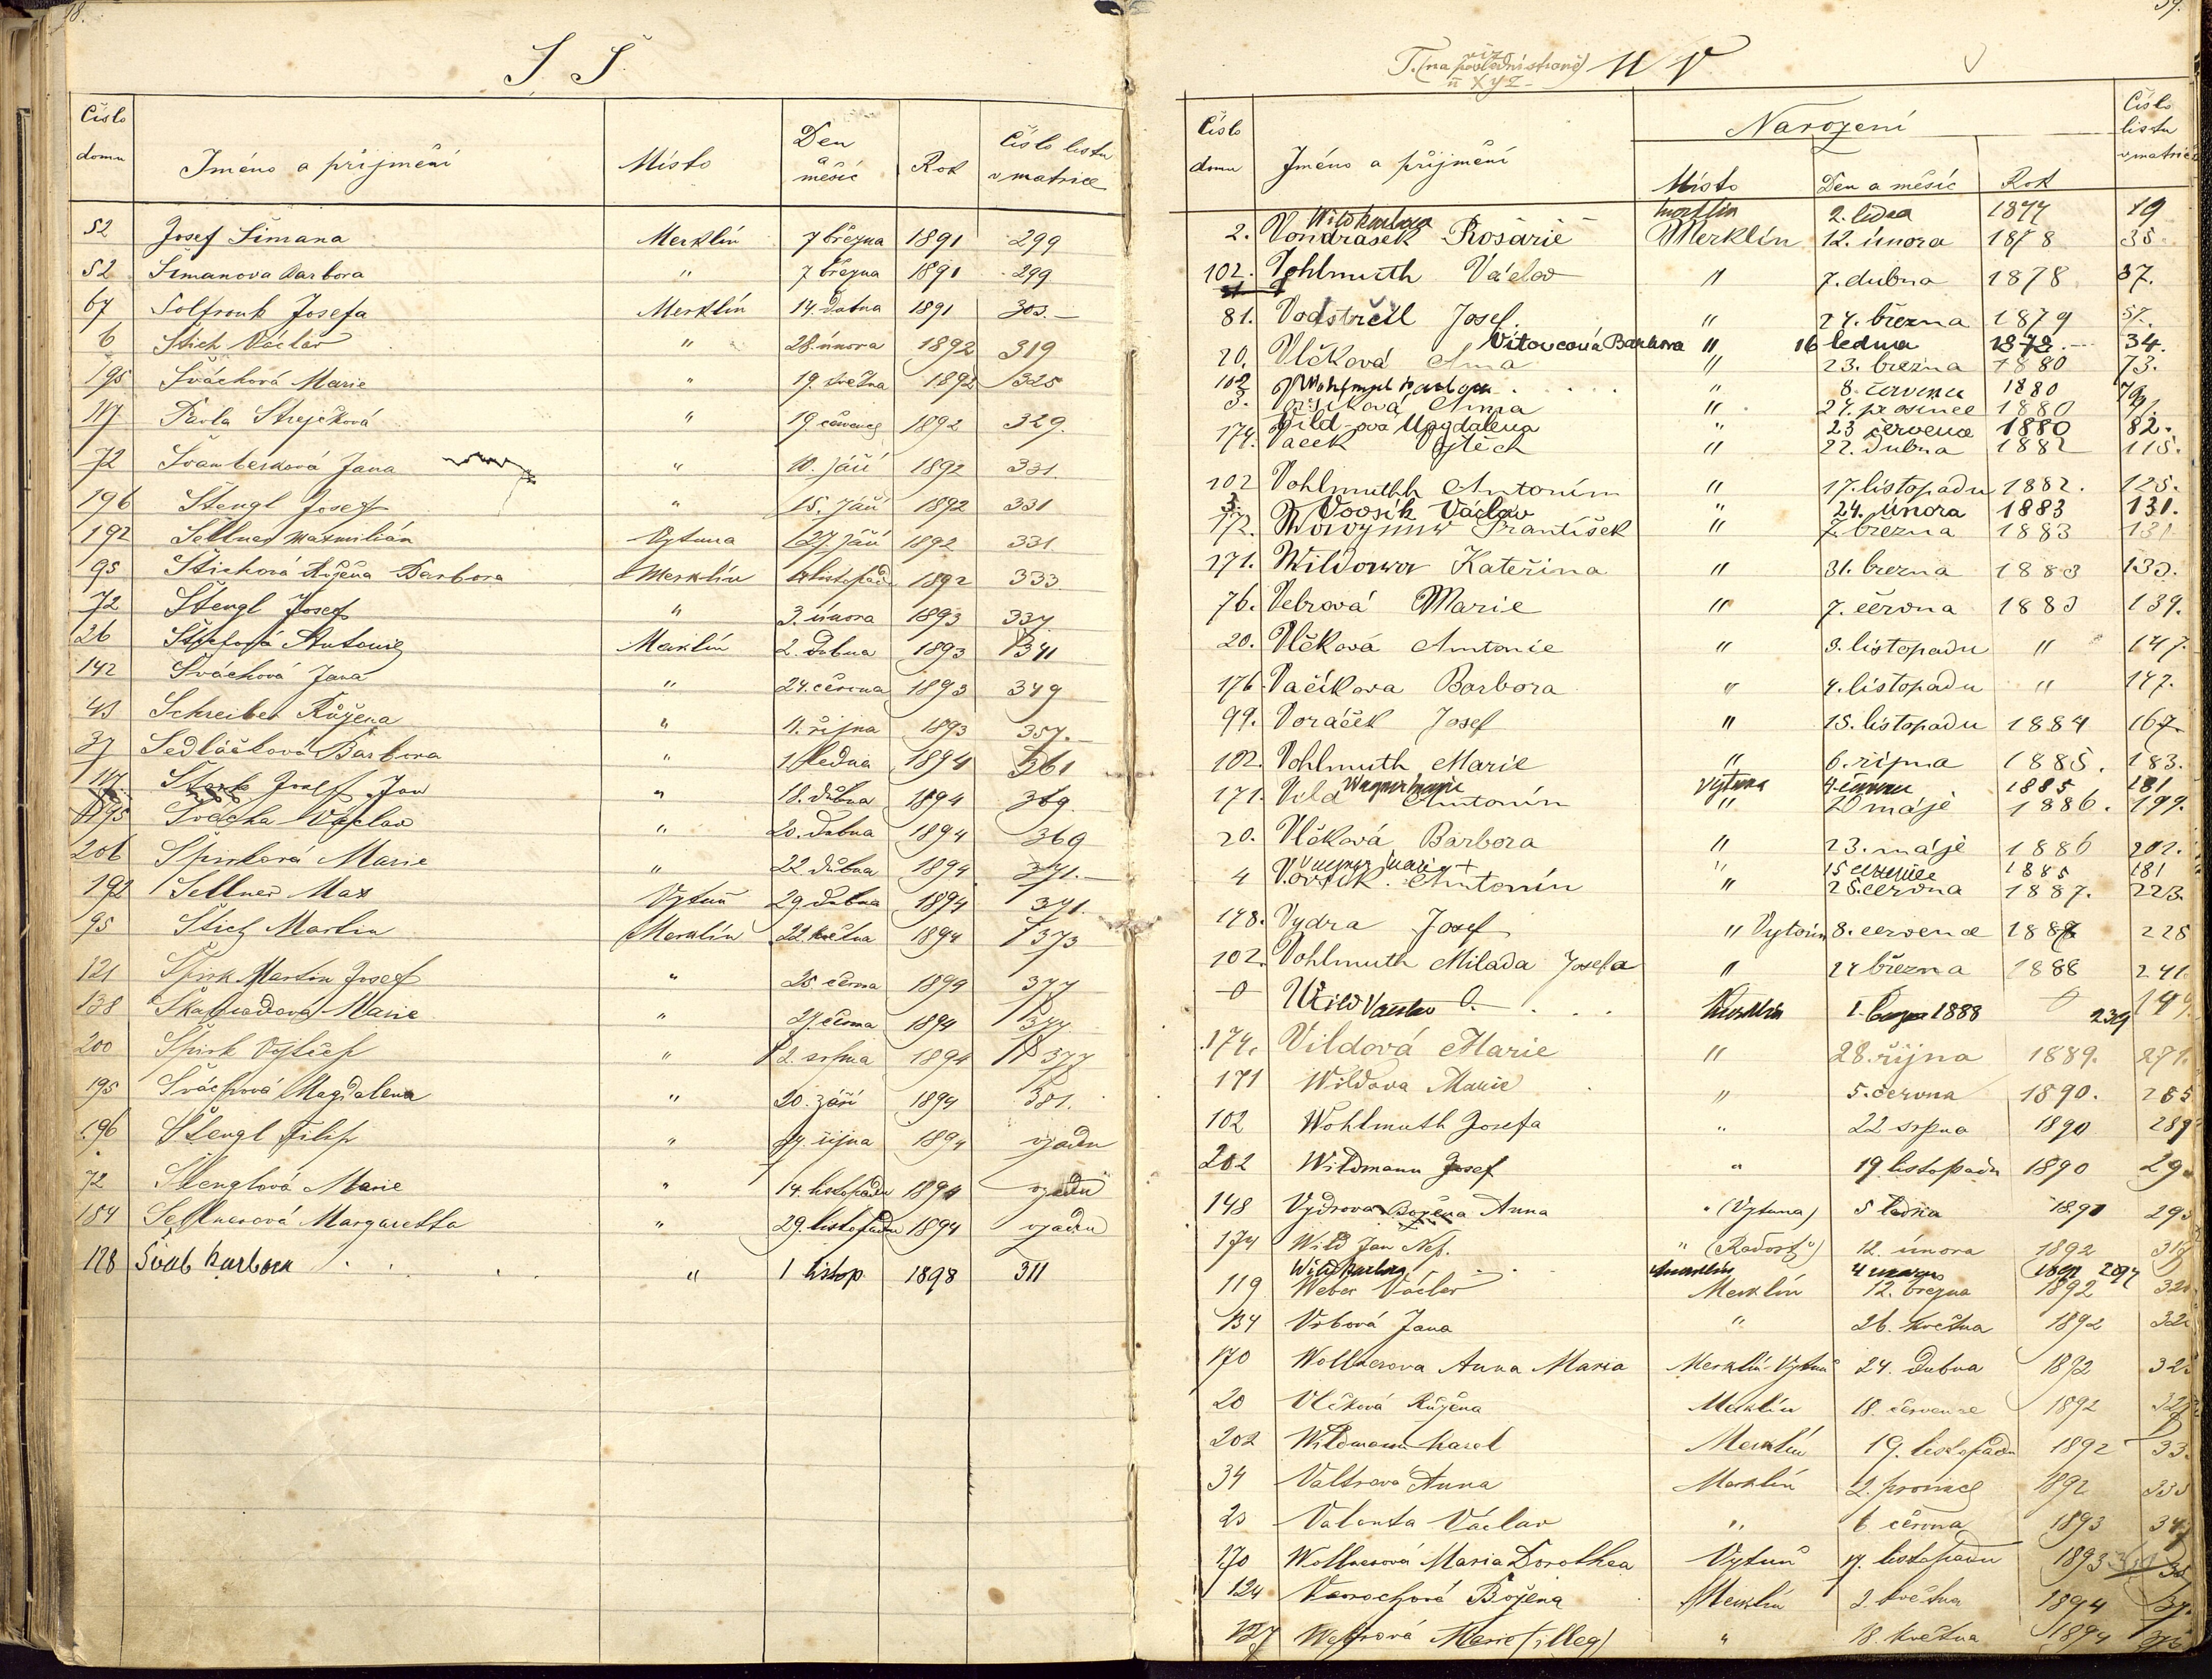 S Š
Číslo domu Jméno a příjmění Místo Den a měsíc Rok Číslo listu v matrice
52 Josef Šimana Merklín 7 března 1891 299
52 Šimanova Barbora " 7 března 1891 299
67 Solfronk Josefa Merklín 14. dubna 1891 303.
6 Štich Václav " 28. února 1892 319
195 Šváchová Marie " 19. května 1892 325
117 Pavla Strejčková " 19 července 1892 329.
72 Švamberková Jana " 10. září 1892 331.
196 Štengl Josef " 15. září 1892 331
192 Sellner Maxmilián Vytuna 27 září 1892 331
95 Štichová Růžena Barbora Merklín listopad 1892 333
72 Štengl Josef " 3. února 1893 337
26 Antonie Merklín 2. dubna 1893 341
142 Šváchová Jana " 24. června 1893 349
43 Schreiber Růžena " 11. října 1893 357.
37 Sedláčková Barbora " 1 ledna 1894 361
117. Jan " 18. dubna 1894 369
195 Švácha Václav " 20. dubna 1894 369
206 Špirková Marie " 22 dubna 1894 371.
192 Sellner Max Vytuň 29. dubna 1894 371.
95 Štich Martin Merklín 22. května 1894 373
121 Špirk Martin Josef " 25. června 1894 377
138 Marie " 27 června 1894 377
200 Špirk Vojtěch " 2. srpna 1894 377
195 Šváchová Magdalena " 20. září 1894 381.
196 Štengl Filip " října 1894 vzadu
72 Štenglová Marie " 14. listopadu 1894 vzadu
184 Sellnerová Margaretta " 29. listopadu 1894 vzadu
128 Šváb Barbora " 1 listop. 1898 311
T. (na poslední straně) viz U V
ii X y Z
Číslo domu Jméno a příjmění Narození Číslo listu v matrice
Místo Den a měsíc Rok
Wild Barbora Merklín 2. ledna 1877 19
2. Vondrášek Rosarie Merklín 12. února 1878 35.
102. Vohlmuth Václav " 7. dubna 1878 37.
81. Vodstrčil Josef. " 24. března 1879 51.
Vítovcová Barbora " 16 ledna 1879. 34.
20. Vlčková Anna " 23. března 1880 73.
102 Barbora " 8. července 1880
3. Anna " 24. prosince 1880
Magdalena " 23 července 1880 82.
174. Vacek Vojtěch " 22. dubna 1882 115.
102 Vohlmuthh Antonín " 17. listopadu 1882. 125.
3. Vovsík Václav " 24. února 1883 131.
172. František " 7. března 1883 131
171. Wildowa Kateřina " 31. března 1883 133.
76. Vebrová Marie " 7. června 1883 139.
20. Vlčková Antonie " 3. listopadu " 147.
176. Vačíkova Barbora " 4. listopadu " 147.
99. Voráček Josef " 15. listopadu 1884 167.
102. Vohlmuth Marie " 6. října 1885. 183.
Wagner Marie Vytuna 1885 181
171. Vild Antonín " 20 máje 1886. 199.
20. Vlčková Barbora " 23. máje 1886 202.
Wagner Marie + " 15 července 1885 181
4 Antonín " 25. června 1887. 223.
148. Vydra Josef " Vytoun 8. července 1887 225
102. Vohlmuth Milada Josefa " 24 března 1888 241.
0 Wild Václav Merklín 1. 1888 239
174. Vildová Marie " 28. října 1889. 271.
171 Wildova Marie " 5. června 1890. 285
102 Wohlmuth Josefa " 22 srpna 1890 289
202 Wildmann Josef " 19. listopadu 1890 29
148 Vydrova Božena Anna " (Vytuna) 5 ledna 1891 29
174 Wild Jan Nep. " 12. února 1892 317
Wild Barbora Merklín
119 Weber Václav Merklín 12. března 1892 32
134 Vrbová Jana " 26. května 1892 32
170 Wollnerova Anna Maria Merklín-Vytuň 24. dubna 1892 32
20 Vlčková Růžena Merklín 18. července 1892 329
202 Wildmann Karel Merklín 19. listopadu 1892 33.
34 Valtrová Anna Merklín 2. prosince 1892 33
23 Valenta Václav " 6 června 1893 34
170 Wollnerová Maria Dorothea Vytuň 17. listopadu 1893
124 Božena Merklín 2. května 1894 37.
127 Marie (illeg) " 18. května 1894